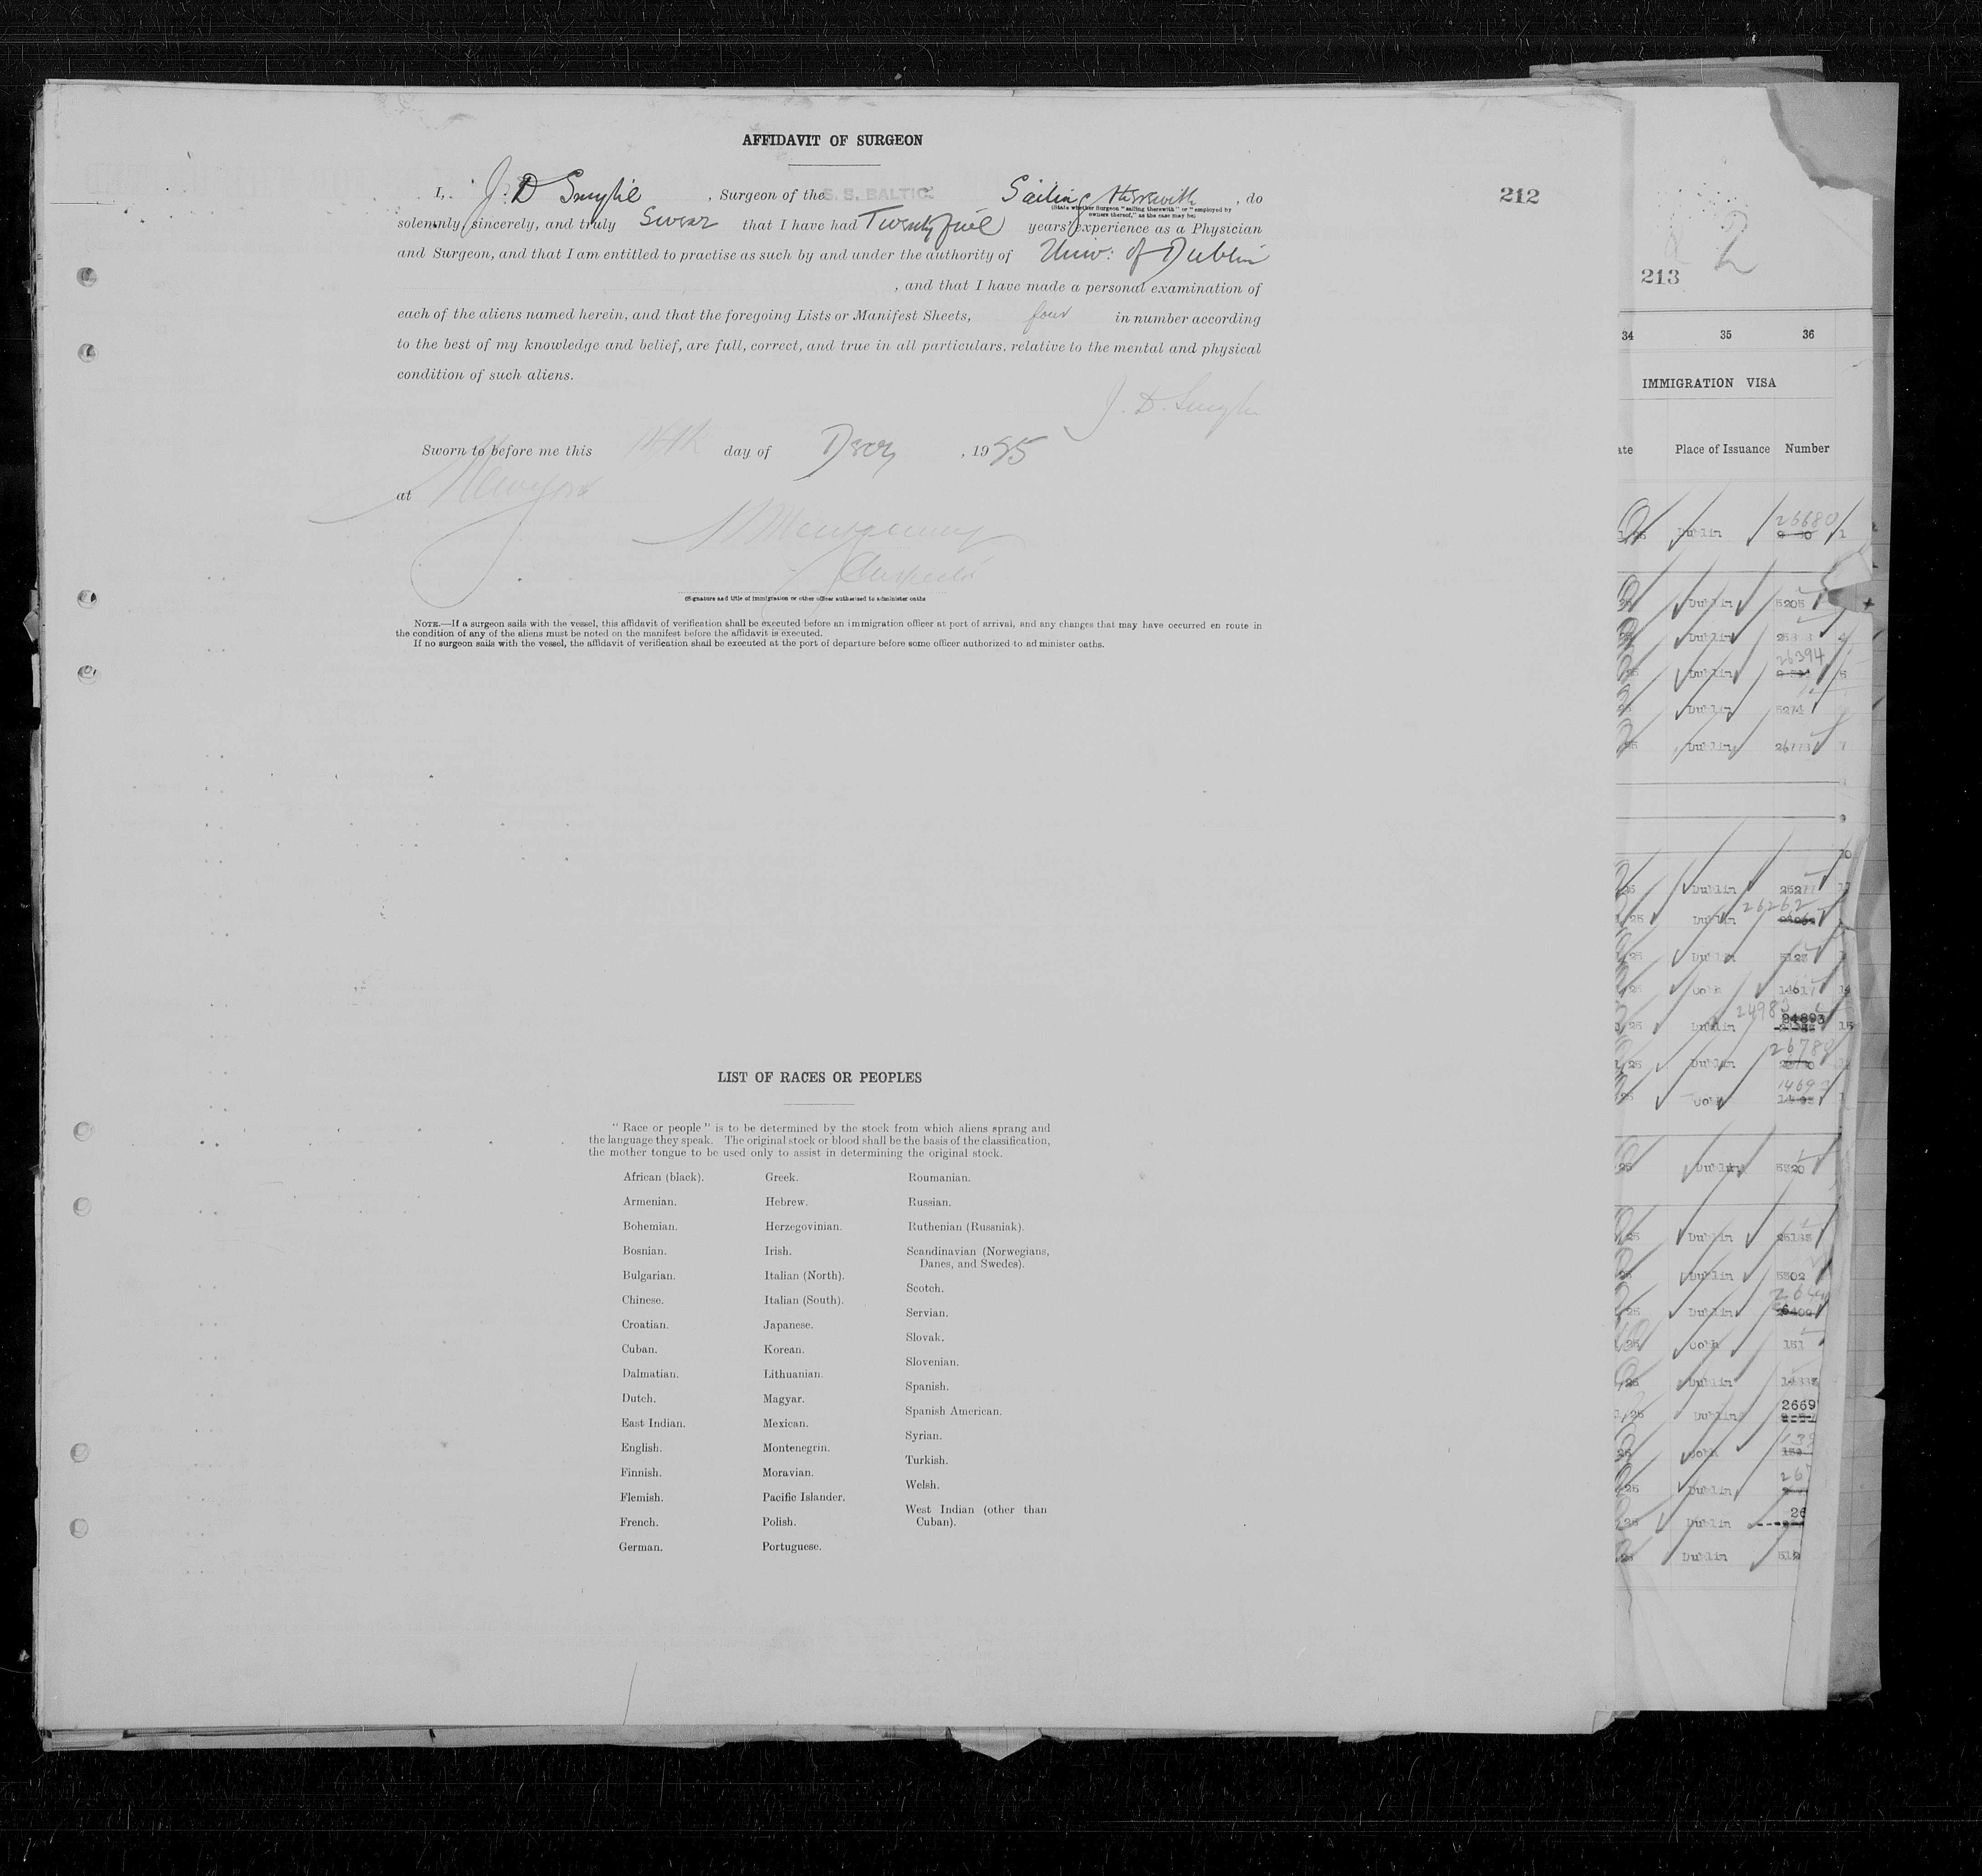 AFFIDAVIT OF SURGEON
212
I, J. D Smylie, Surgeon of the S. S. BALTIC. Sailing therewith, do
(State whether Surgeon "sailing therewith" or "employed by
owners thereof," as the case may be)
solemnly, sincerely, and truly swear that I have had Twenty five years' experience as a Physician
and Surgeon, and that I am entitled to practise as such by and under the authority of Univ: of Dublin
, and that I have made a personal examination of
each of the aliens named herein, and that the foregoing Lists or Manifest Sheets, four in number according
to the best of my knowledge and belief, are full, correct, and true in all particulars, relative to the mental and physical
condition of such aliens.
J. D. Smylie
Sworn to before me this day of , 19 25
at New York
(Signature and title of immigration or other officer authorized to administer oaths
NOTE.—If a surgeon sails with the vessel, this affidavit of verification shall be executed before an immigration officer at port of arrival, and any changes that may have occurred en route in
the condition of any of the aliens must be noted on the manifest before the affidavit is executed.
If no surgeon sails with the vessel, the affidavit of verification shall be executed at the port of departure before some officer authorized to administer oaths.
LIST OF RACES OR PEOPLES
"Race or people" is to be determined by the stock from which aliens sprang and
the language they speak. The original stock or blood shall be the basis of the classification,
the mother tongue to be used only to assist in determining the original stock.
African (black).
Armenian.
Bohemian.
Bosnian.
Bulgarian.
Chinese.
Croatian.
Cuban.
Dalmatian.
Dutch.
East Indian.
English.
Finnish.
Flemish.
French.
German.
Greek.
Hebrew.
Herzegovinian.
Irish.
Italian (North).
Italian (South).
Japanese.
Korean.
Lithuanian.
Magyar.
Mexican.
Montenegrin.
Moravian.
Pacific Islander.
Polish.
Portuguese.
Roumanian.
Russian.
Ruthenian (Russniak).
Scandinavian (Norwegians,
Danes, and Swedes).
Scotch.
Servian.
Slovak.
Slovenian.
Spanish.
Spanish American.
Syrian.
Turkish.
Welsh.
West Indian (other than
Cuban).
2
213
34 35 36
IMMIGRATION VISA
Place of Issuance Number
Dublin 26680 1
Dublin 5205
Dublin
Dublin 26394 5
Dublin 5274
Dublin 7
9
10
Dublin
25 Dublin 26262
25 Dublin 5123
25 Cobh 14617 14
25 Dublin 24983 24893 15
25 Dublin 26780
25 Cobh
25 Dublin 5320
25 Dublin
Dublin 5302
25 Dublin
25 Cobh 151
25 Dublin
25 Dublin 2669
25 Cobh 139
25 Dublin 267
25 Dublin 26
25 Dublin 512